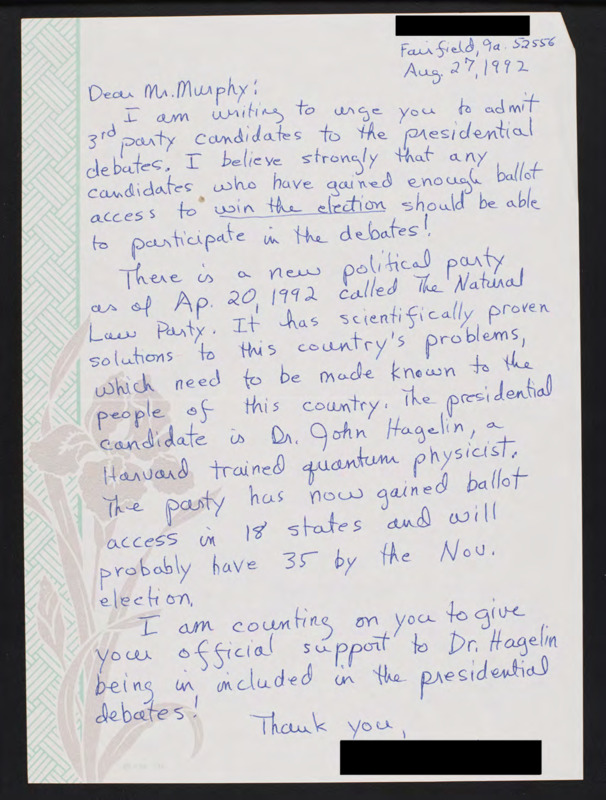 Fairfield, Ia. 52556
Aug. 27, 1992
Dear Mr. Murphy:
I am writing to urge you to admit
3rd party candidates to the presidential
debates. I believe strongly that any
candidates who have gained enough ballot
access to win the election should be able
to participate in the debates!
There is a new political party
as of Ap. 20, 1992 called The Natural
Law Party. It has scientifically proven
solutions to this country's problems,
which need to be made known to the
people of this country. The presidential
candidate is Dr. John Hagelin, a
Harvard trained quantum physicist.
The party has now gained ballot
access in 18 states and will
probably have 35 by the Nov.
election.
I am counting on you to give
your official support to Dr. Hagelin
being in included in the presidential
debates!
Thank you,